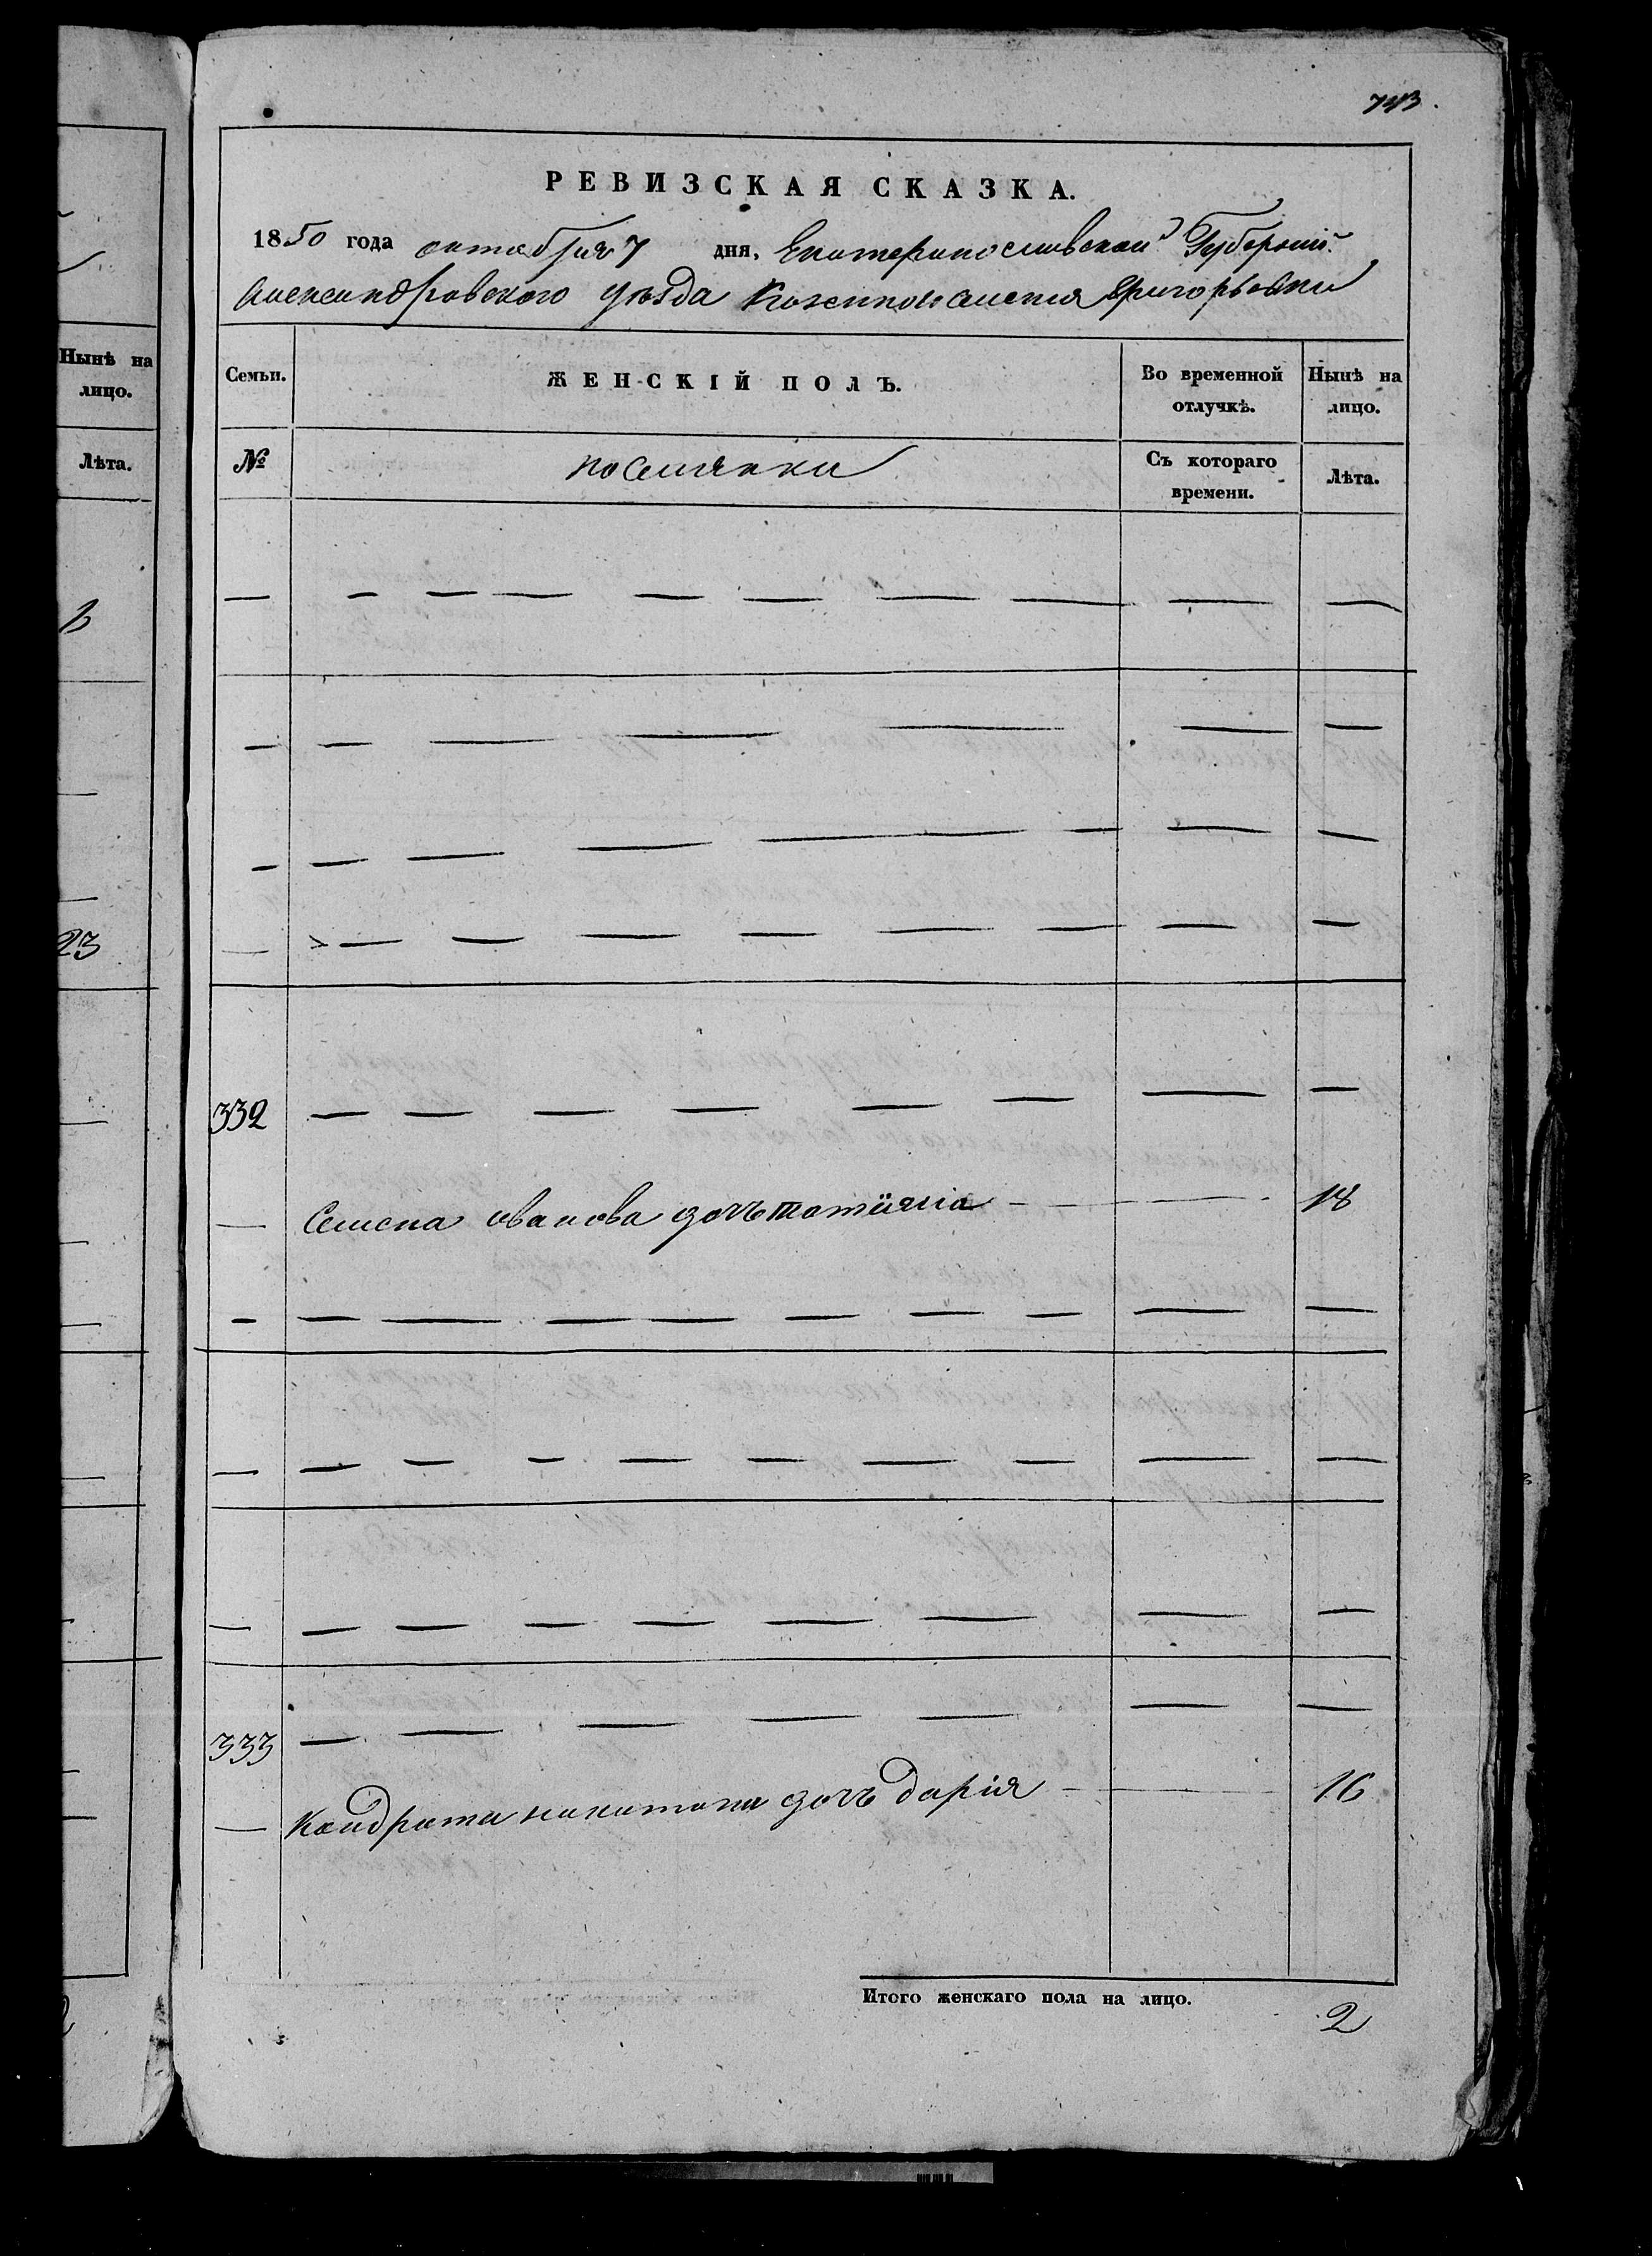 743.
РЕВИЗСКАЯ СКАЗКА.
1850 года октября 7 дня, Екатеринославской Губернiй
Александровского уѣзда Григорьевки
Семьи. ЖЕНСКІЙ ПОЛЪ. Во временной отлучкѣ. Нынѣ на лицо.
№ поселянки Съ котораго времени. Лѣта.
332
Семена иванова дочь татіяна 18
333
Кондрата никитина дочь дарія 16
Итого женскаго пола на лицо. 2
Нынѣ на
лицо.
Лѣта.
23